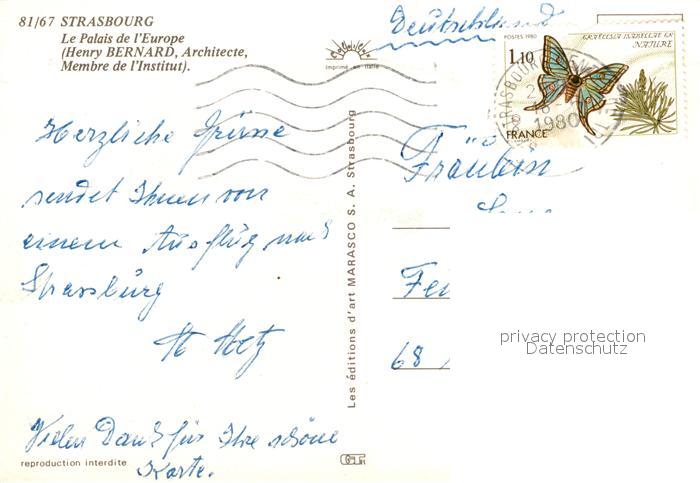 81/67 STRASBOURG
Le Palais de l'Europe
(Henry BERNARD, Architecte,
Membre de l'Institut).
imprimé en Italie
Deutschland
POSTES 1980
GRAELLSIA ISABELLAE EN
NATURE
1,10
1980
FRANCE
Herzliche Grüsse
sendet Ihnen von
einem Ausflug nach
Strassburg
Metz
Vielen Dank für Ihre schöne
Karte.
reproduction interdite
Les éditions d'art MARASCO S. A. Strasbourg
Fräulein
68
privacy protection
Datenschutz